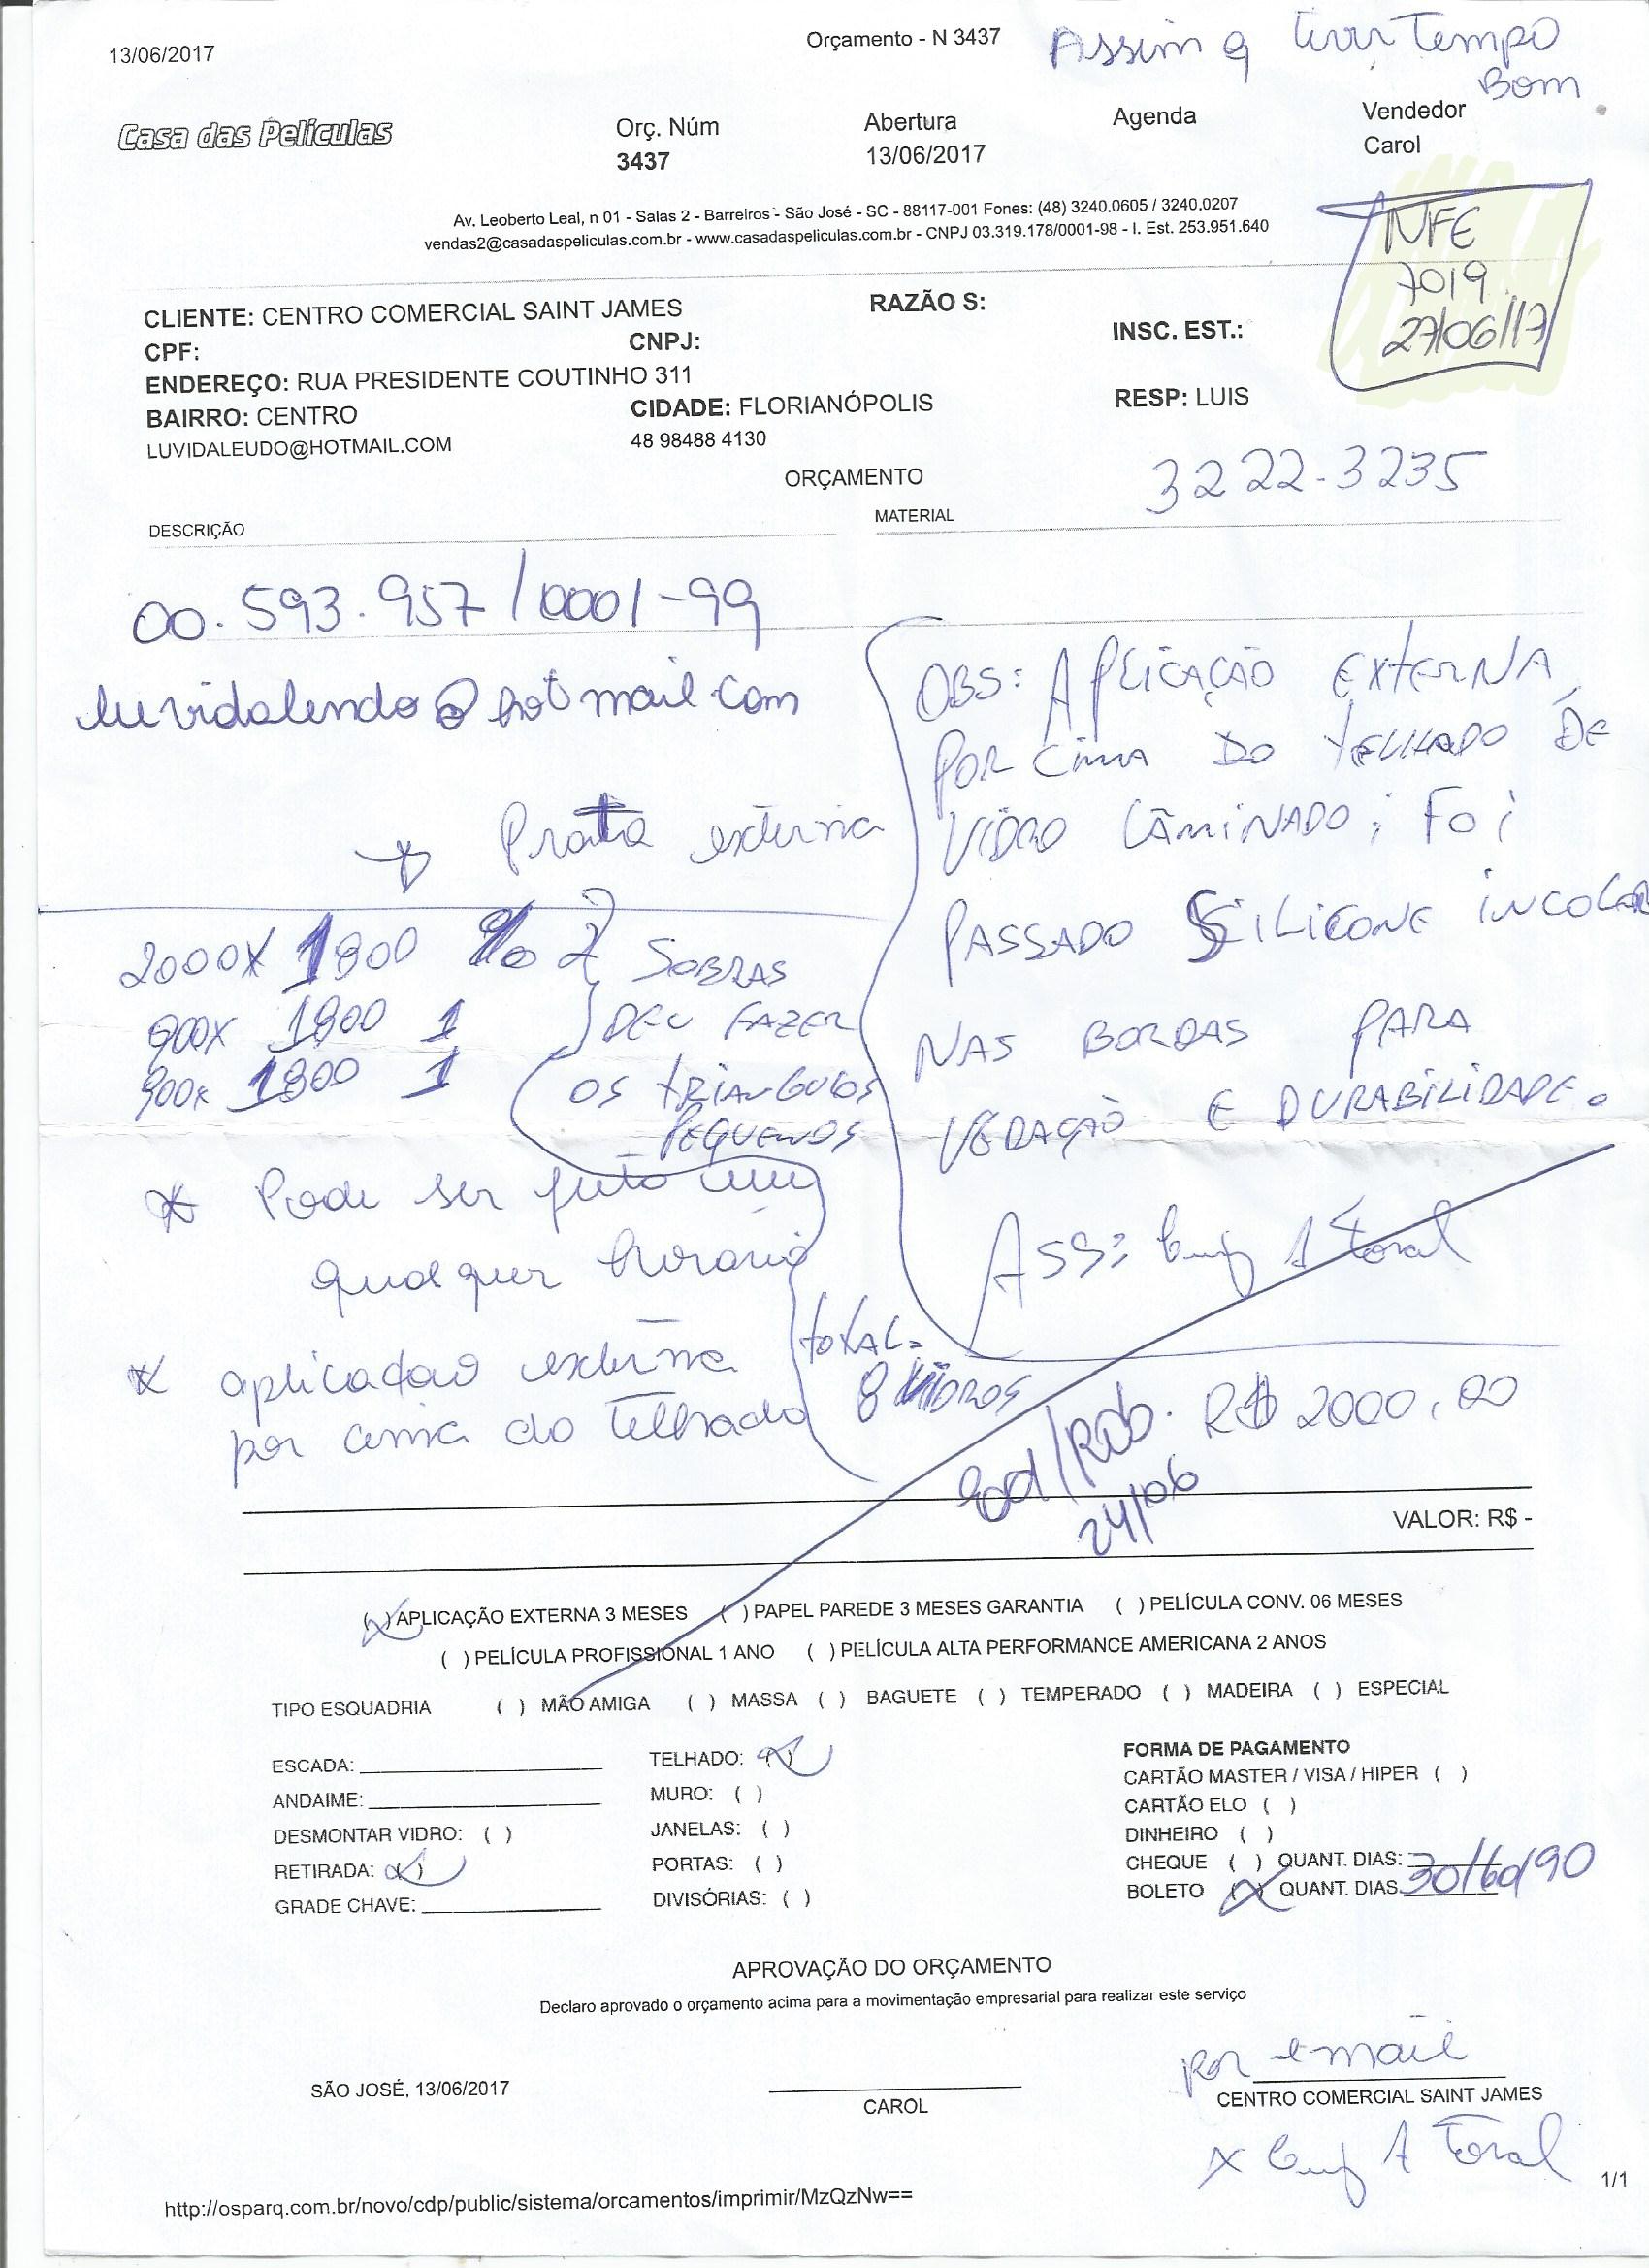 13/06/2017
Orçamento - N 3437
Assim q tiver Tempo
Bom
Casa das Películas
Orç. Núm
3437
Abertura
13/06/2017
Agenda
Vendedor
Carol
Av. Leoberto Leal, n 01 - Salas 2 - Barreiros - São José - SC - 88117-001 Fones: (48) 3240.0605 / 3240.0207
vendas2@casadaspeliculas.com.br - www.casadaspeliculas.com.br - CNPJ 03.319.178/0001-98 - I. Est. 253.951.640
NFE
7019
27/06/17
CLIENTE: CENTRO COMERCIAL SAINT JAMES
RAZÃO S:
CPF:
CNPJ:
INSC. EST.:
ENDEREÇO: RUA PRESIDENTE COUTINHO 311
BAIRRO: CENTRO
CIDADE: FLORIANÓPOLIS
RESP: LUIS
LUVIDALEUDO@HOTMAIL.COM
48 98488 4130
ORÇAMENTO
3222-3235
DESCRIÇÃO
MATERIAL
00.593.957/0001-99
luvidalendo@hotmail.com
Prata externa
2000X 1800 2
900X 1800 1
900x 1800 1
SOBRAS
DEU FAZER
OS TRIANGULOS
PEQUENOS
OBS: APLICAÇÃO EXTERNA,
POR CIMA DO TELHADO DE
VIDRO LAMINADO; FOI
PASSADO SILICONE INCOLOR
NAS BORDAS PARA
VEDAÇÃO E DURABILIDADE.
* Pode ser feito em
qualquer horario
ASS:
* aplicadao externa
por cima do Telhado
TOTAL=
8 VIDROS
R$ 2000,00
24/06
VALOR: R$ -
(X) APLICAÇÃO EXTERNA 3 MESES ( ) PAPEL PAREDE 3 MESES GARANTIA ( ) PELÍCULA CONV. 06 MESES
( ) PELÍCULA PROFISSIONAL 1 ANO ( ) PELÍCULA ALTA PERFORMANCE AMERICANA 2 ANOS
TIPO ESQUADRIA ( ) MÃO AMIGA ( ) MASSA ( ) BAGUETE ( ) TEMPERADO ( ) MADEIRA ( ) ESPECIAL
ESCADA:
ANDAIME:
DESMONTAR VIDRO: ( )
RETIRADA: (X)
GRADE CHAVE:
TELHADO: (X)
MURO: ( )
JANELAS: ( )
PORTAS: ( )
DIVISÓRIAS: ( )
FORMA DE PAGAMENTO
CARTÃO MASTER / VISA / HIPER ( )
CARTÃO ELO ( )
DINHEIRO ( )
CHEQUE ( ) QUANT. DIAS:
BOLETO (X) QUANT. DIAS. 30/60/90
APROVAÇÃO DO ORÇAMENTO
Declaro aprovado o orçamento acima para a movimentação empresarial para realizar este serviço
por email
SÃO JOSÉ, 13/06/2017
CAROL
CENTRO COMERCIAL SAINT JAMES
http://osparq.com.br/novo/cdp/public/sistema/orcamentos/imprimir/MzQzNw==
1/1